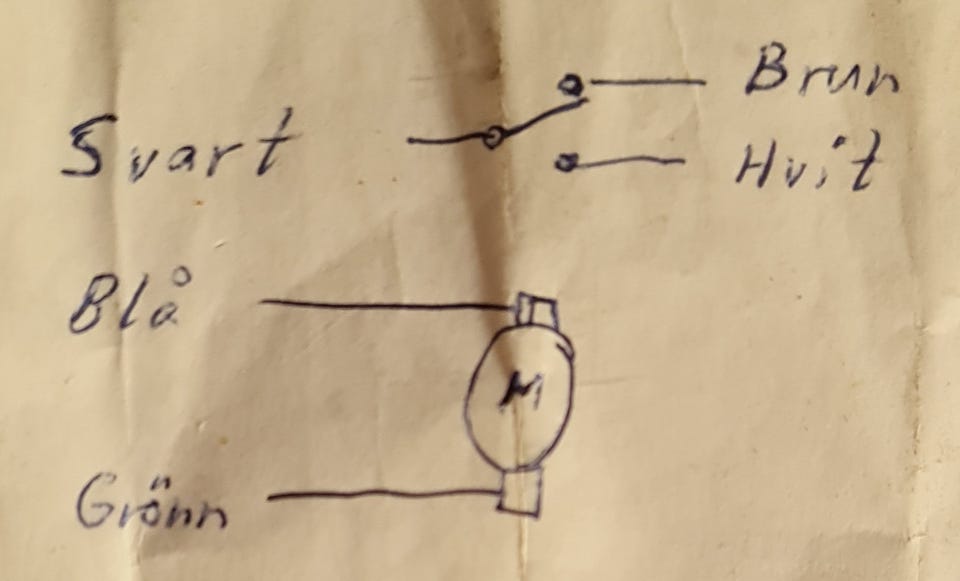 Brun
Svart
Hvit
Blå
M
Grönn